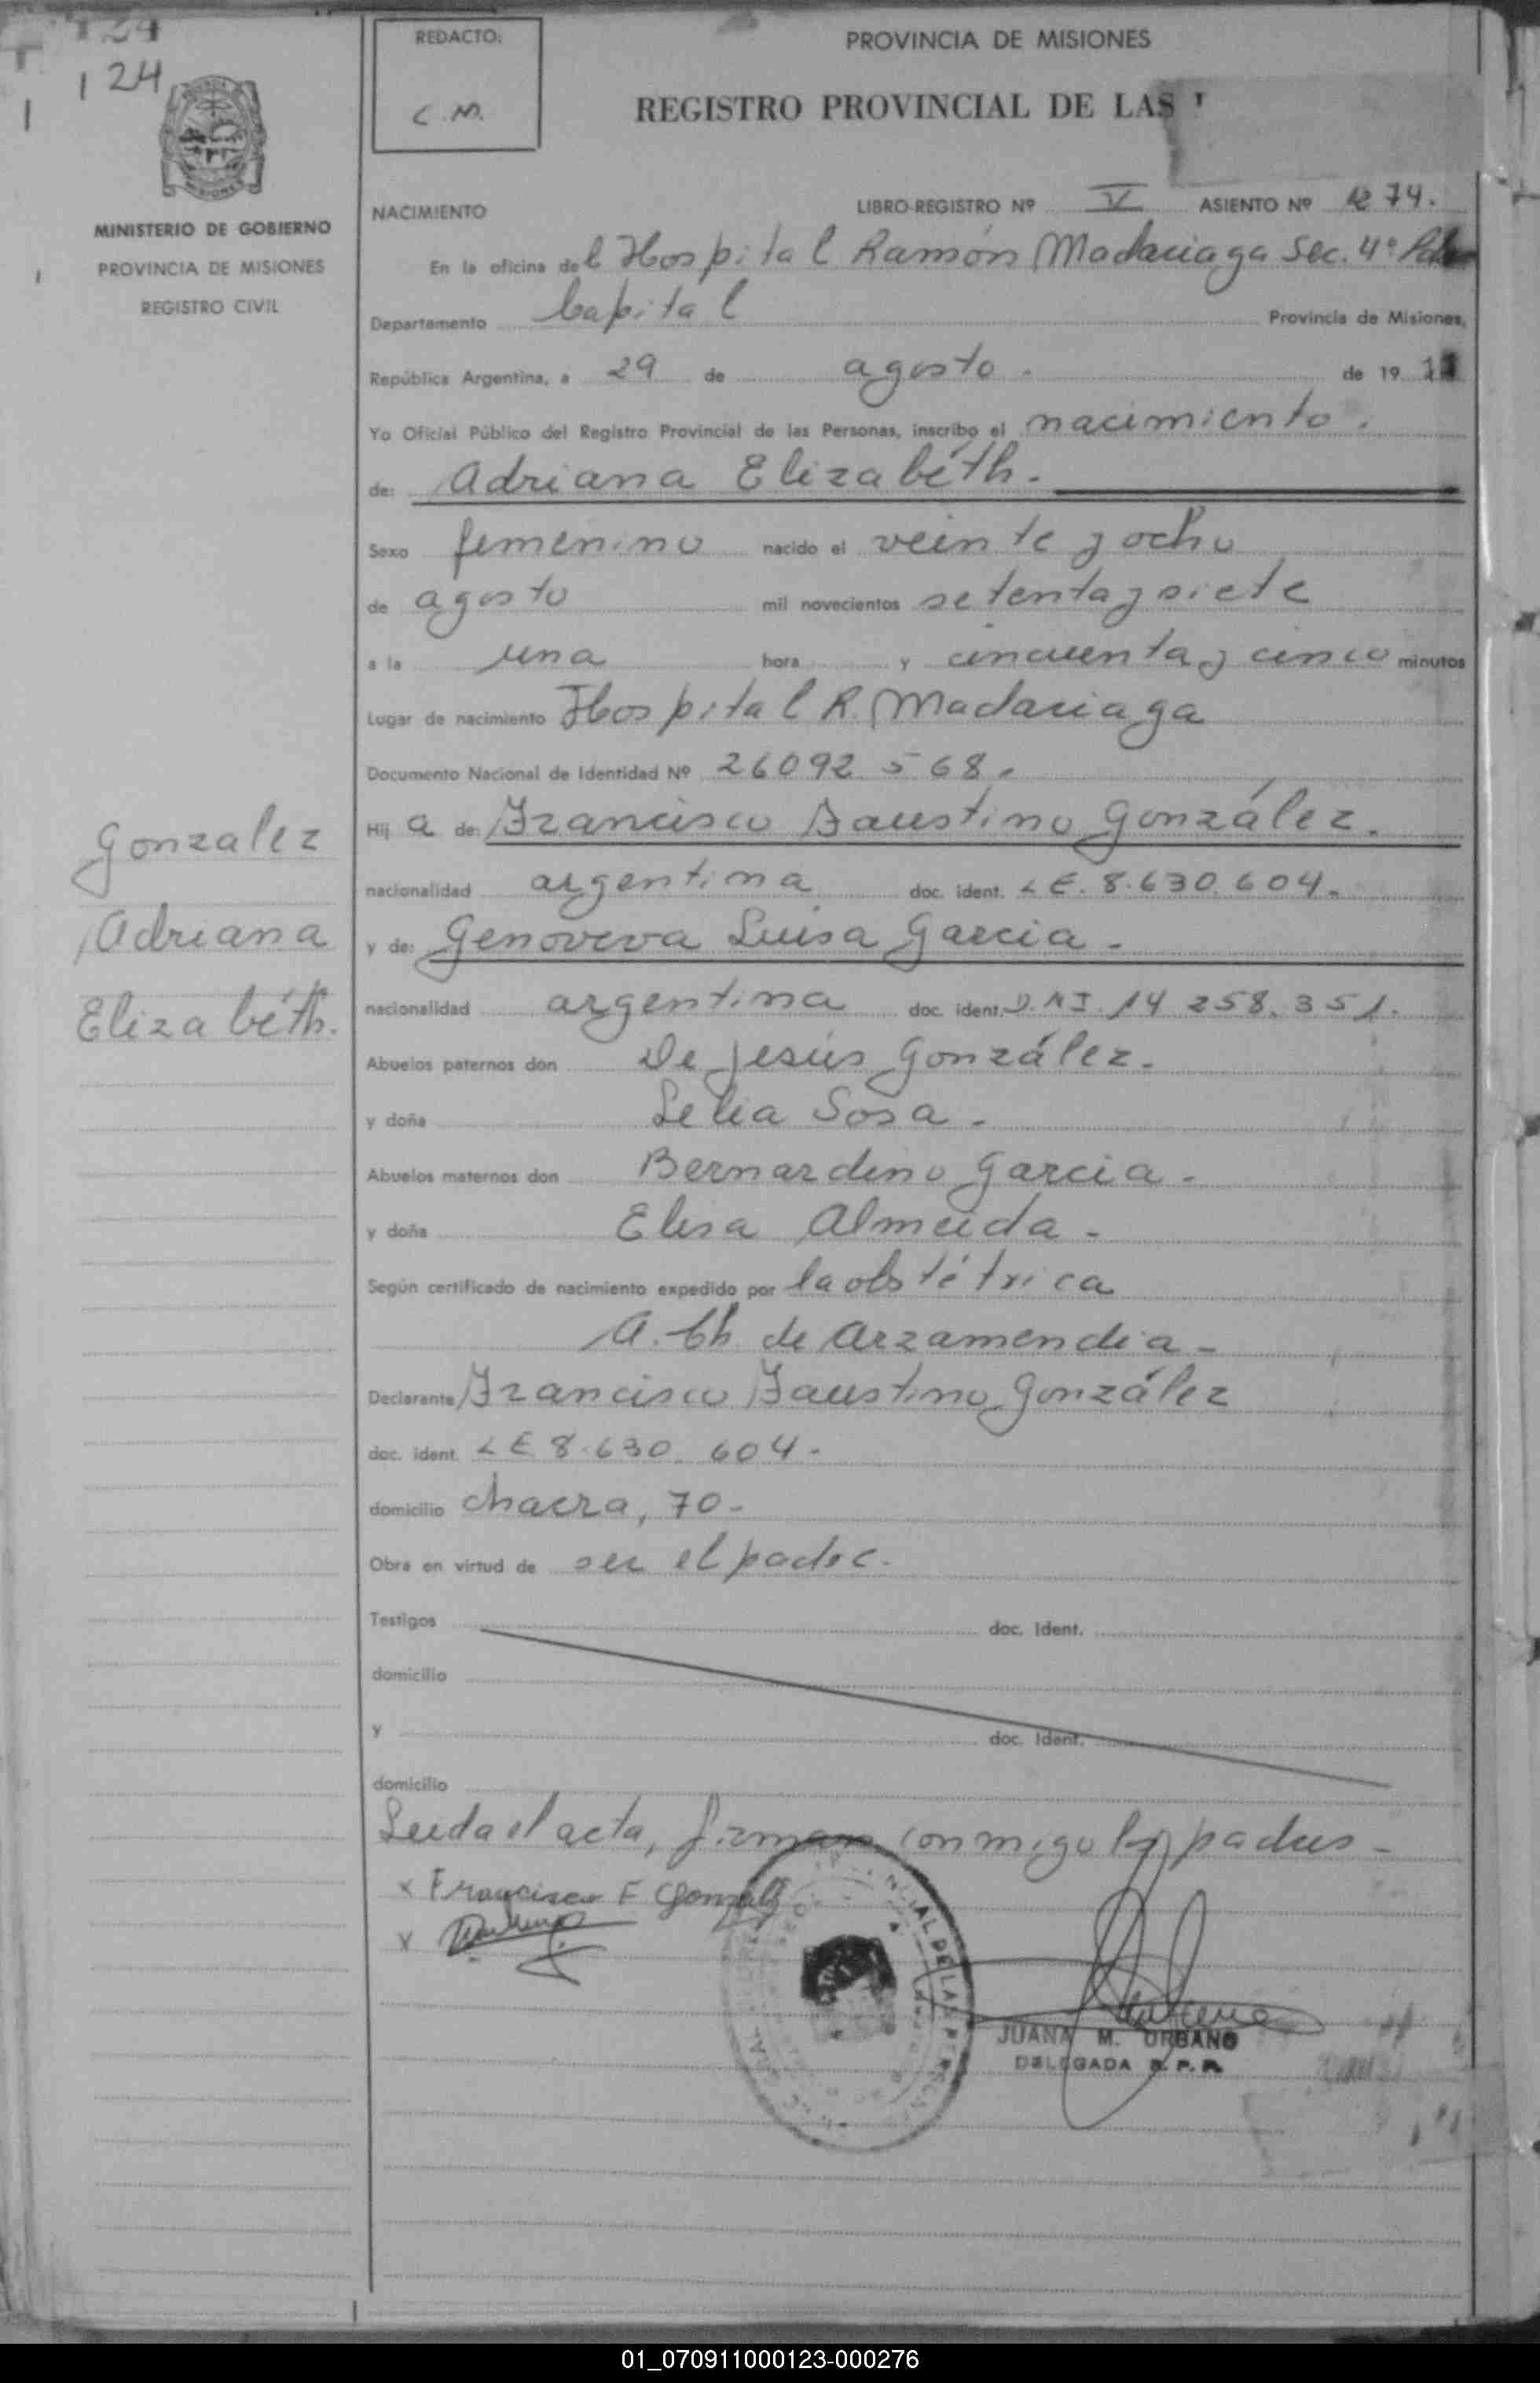 124
124
REDACTO:
C.M.
PROVINCIA DE MISIONES
REGISTRO PROVINCIAL DE LAS
MINISTERIO DE GOBIERNO
PROVINCIA DE MISIONES
REGISTRO CIVIL
NACIMIENTO LIBRO-REGISTRO Nº V ASIENTO Nº 1274.
En la oficina del Hospital Ramón Madariaga Sec. 4º
Departamento Capital Provincia de Misiones,
República Argentina, a 29 de agosto. de 19
Yo Oficial Público del Registro Provincial de las Personas, inscribo el nacimiento.
de: Adriana Elizabéth.
Sexo femenino nacido el veinte y ocho
de agosto mil novecientos setenta y siete
a la una hora y cincuenta y cinco minutos
Lugar de nacimiento Hospital R. Madariaga
Documento Nacional de Identidad Nº 26092568.
Hij a de: Francisco Faustino González.
nacionalidad argentina doc. ident. LE. 8.630.604.
y de: Genoveva Luisa Garcia -
nacionalidad argentina doc. ident. D.N.I. 14 258.351.
Abuelos paternos don De Jesús González.
y doña Lelia Sosa.
Abuelos maternos don Bernardino Garcia -
y doña Elisa Almeida -
Según certificado de nacimiento expedido por la obstétrica
A. Ch de Arzamendia -
Declarante Francisco Faustino González
doc. ident. LE 8.630.604.
domicilio chacra, 70-
Obra en virtud de ser el padre.
Testigos doc. Ident.
domicilio
y doc. Ident.
domicilio
Leida el acta, firman conmigo los padres -
x Francisco F Gonzalez
x
JUANA M. URBANO
DELEGADA R.P.P.
Gonzalez
Adriana
Elizabéth.
01_070911000123-000276